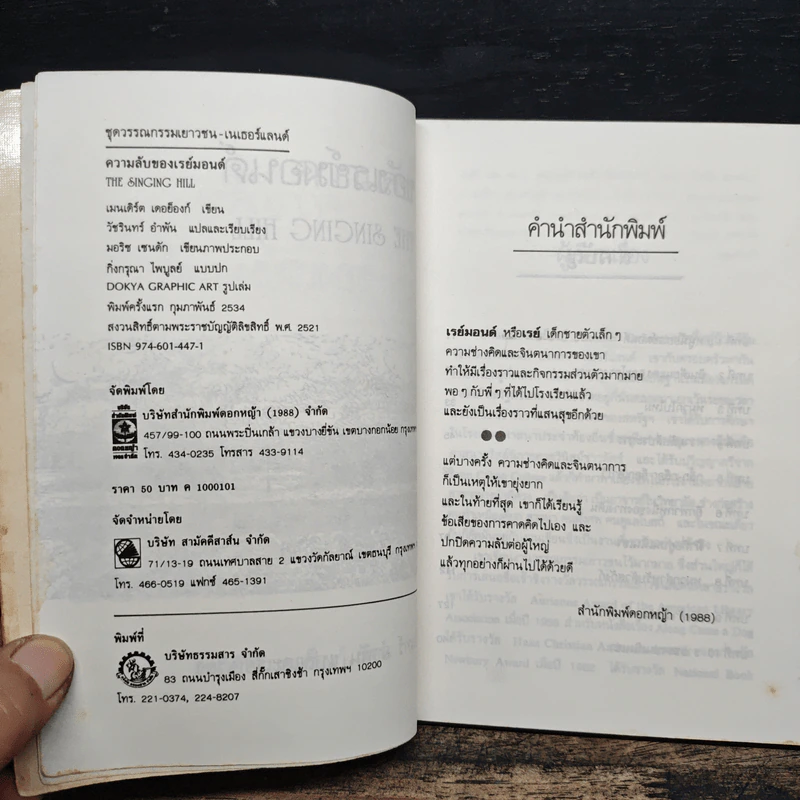 ชุดวรรณกรรมเยาวชน-เนเธอร์แลนด์
ความลับของเรย์มอนด์
THE SINGING HILL
เมนเดิร์ต เดอย็องก์ เขียน
วัชรินทร์ อำพัน แปลและเรียบเรียง
มอริช เซนดัก เขียนภาพประกอบ
กิ่งกรุณา ไพบูลย์ แบบปก
DOKYA GRAPHIC ART รูปเล่ม
พิมพ์ครั้งแรก กุมภาพันธ์ 2534
สงวนสิทธิ์ตามพระราชบัญญัติลิขสิทธิ์ พ.ศ. 2521
ISBN 974-601-447-1
จัดพิมพ์โดย
บริษัทสำนักพิมพ์ดอกหญ้า (1988) จำกัด
457/99-100 ถนนพระปิ่นเกล้า แขวงบางยี่ขัน เขตบางกอกน้อย กรุงเทพฯ
โทร. 434-0235 โทรสาร 433-9114
ราคา 50 บาท ค 1000101
จัดจำหน่ายโดย
บริษัท สามัคคีสาส์น จำกัด
71/13-19 ถนนเทศบาลสาย 2 แขวงวัดกัลยาณ์ เขตธนบุรี กรุงเทพฯ
โทร. 466-0519 แฟกซ์ 465-1391
พิมพ์ที่
บริษัทธรรมสาร จำกัด
83 ถนนบำรุงเมือง สี่กั๊กเสาชิงช้า กรุงเทพฯ 10200
โทร. 221-0374, 224-8207
คำนำสำนักพิมพ์
เรย์มอนด์ หรือเรย์ เด็กชายตัวเล็ก ๆ
ความช่างคิดและจินตนาการของเขา
ทำให้มีเรื่องราวและกิจกรรมส่วนตัวมากมาย
พอ ๆ กับพี่ ๆ ที่ได้ไปโรงเรียนแล้ว
และยังเป็นเรื่องราวที่แสนสุขอีกด้วย
แต่บางครั้ง ความช่างคิดและจินตนาการ
ก็เป็นเหตุให้เขายุ่งยาก
และในท้ายที่สุด เขาก็ได้เรียนรู้
ข้อเสียของการคาดคิดไปเอง และ
ปกปิดความลับต่อผู้ใหญ่
แล้วทุกอย่างก็ผ่านไปได้ด้วยดี
สำนักพิมพ์ดอกหญ้า (1988)